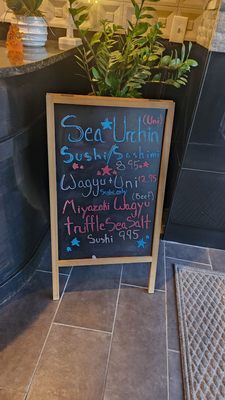 Sea Urchin (Uni)
Sushi/Sashimi
8.95
Wagyu+Uni 12.95
Sushi only
Miyazaki Wagyu (Beef)
truffle Sea Salt
Sushi 9.95